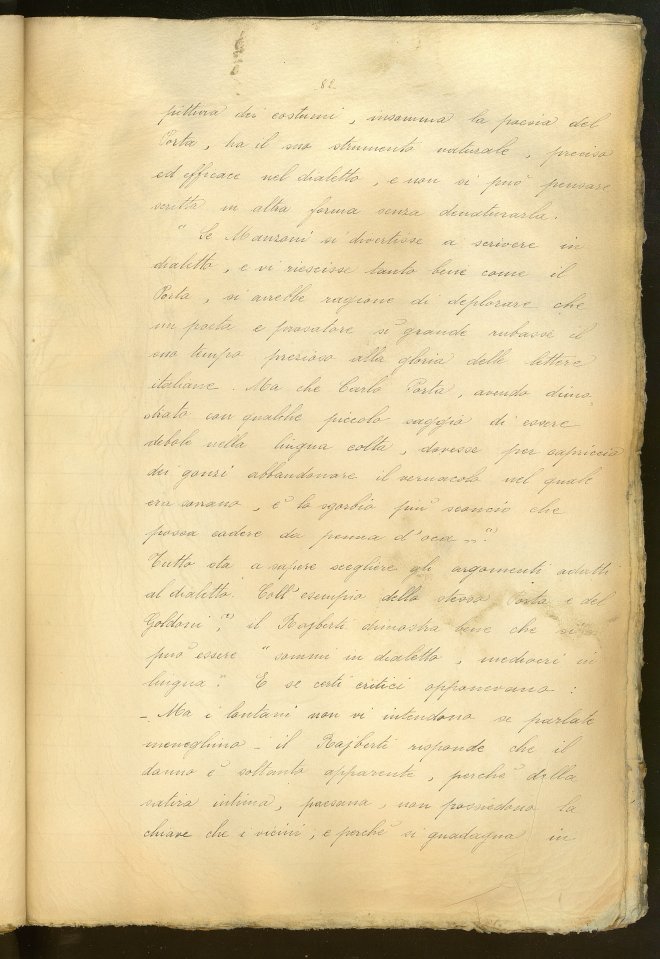 82
pittura dei costumi, insomma la poesia del
Porta, ha il suo strumento naturale, preciso
ed efficace nel dialetto, e non si può pensare
scritta in altra forma senza denaturarla.
" Se Manzoni si divertisse a scrivere in
dialetto, e vi riescisse tanto bene come il
Porta, si avrebbe ragione di deplorare che
un poeta e prosatore sì grande rubasse il
suo tempo prezioso alla gloria delle lettere
italiane. Ma che Carlo Porta, avendo dimo-
strato con qualche piccolo saggio di essere
debole nella lingua colta, dovesse per capriccio
dei gonzi abbandonare il vernacolo nel quale
era sovrano, è lo sgorbio più sconcio che
possa cadere da penna d'oca ..."
Tutto sta a sapere scegliere gli argomenti adatti
al dialetto. Coll'esempio dello stesso Porta e del
Goldoni, il Rajberti dimostra bene che si
può essere " sommi in dialetto, mediocri in
lingua". E se certi critici opponevano :
- Ma i lontani non vi intendono se parlate
meneghino - il Rajberti risponde che il
danno è soltanto apparente, perchè della
satira intima, paesana, non posseedono la
chiave che i vicini; e perchè si guadagna in